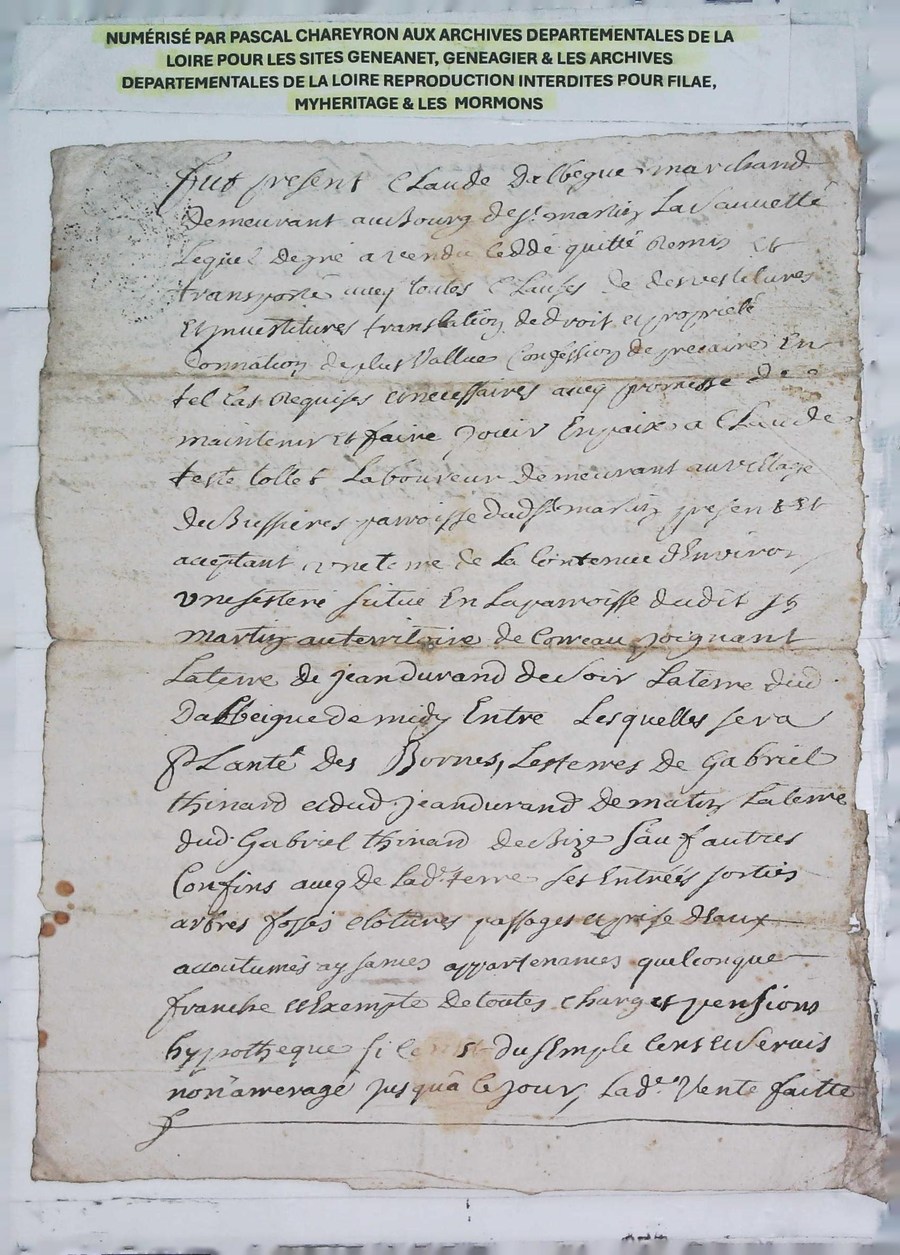 NUMÉRISÉ PAR PASCAL CHAREYRON AUX ARCHIVES DEPARTEMENTALES DE LA
LOIRE POUR LES SITES GENEANET, GENEAGIER & LES ARCHIVES
DEPARTEMENTALES DE LA LOIRE REPRODUCTION INTERDITES POUR FILAE,
MYHERITAGE & LES MORMONS
fut present Claude Dalbegue marchand
Demeurant au Bourg de st martin La Sauvetté
Lequel De gré a vendu ceddé quitté Remis et
transporté aveq toutes Clauses de desvestitures
Et investitures translation de droit et proprieté
Donnation de plus Vallue Confession de precaires En
tel Cas Requises et necessaires aveq promesse de
maintenir et faire jouir En paix a Claude
teste tollet Laboureur Demeurant au village
de Bussieres parroisse dud st martin present Et
acceptant une terre de La Contenue d'Environ
une sesteré situé En La parroisse dudit st
martin au territoire de Correau joignant
La terre de jean durand de soir La terre dud
Dalbeigue de midy Entre Lesquelles sera
Planté Des Bornes, Les terres de Gabriel
thinard et dud jean durand De matin La terre
dud Gabriel thinard de Bize Sauf autres
Confins aveq De Lad terre ses Entrées sorties
arbres fossés clotures passages et prise d'Eaux
accoutumés aysances appartenances quelconque
franche et Exempte de toutes charges pensions
hypotheque si ce n'est du simple Cens et servis
non arreragé jusqu'a ce jour, Lad.e Vente faitte